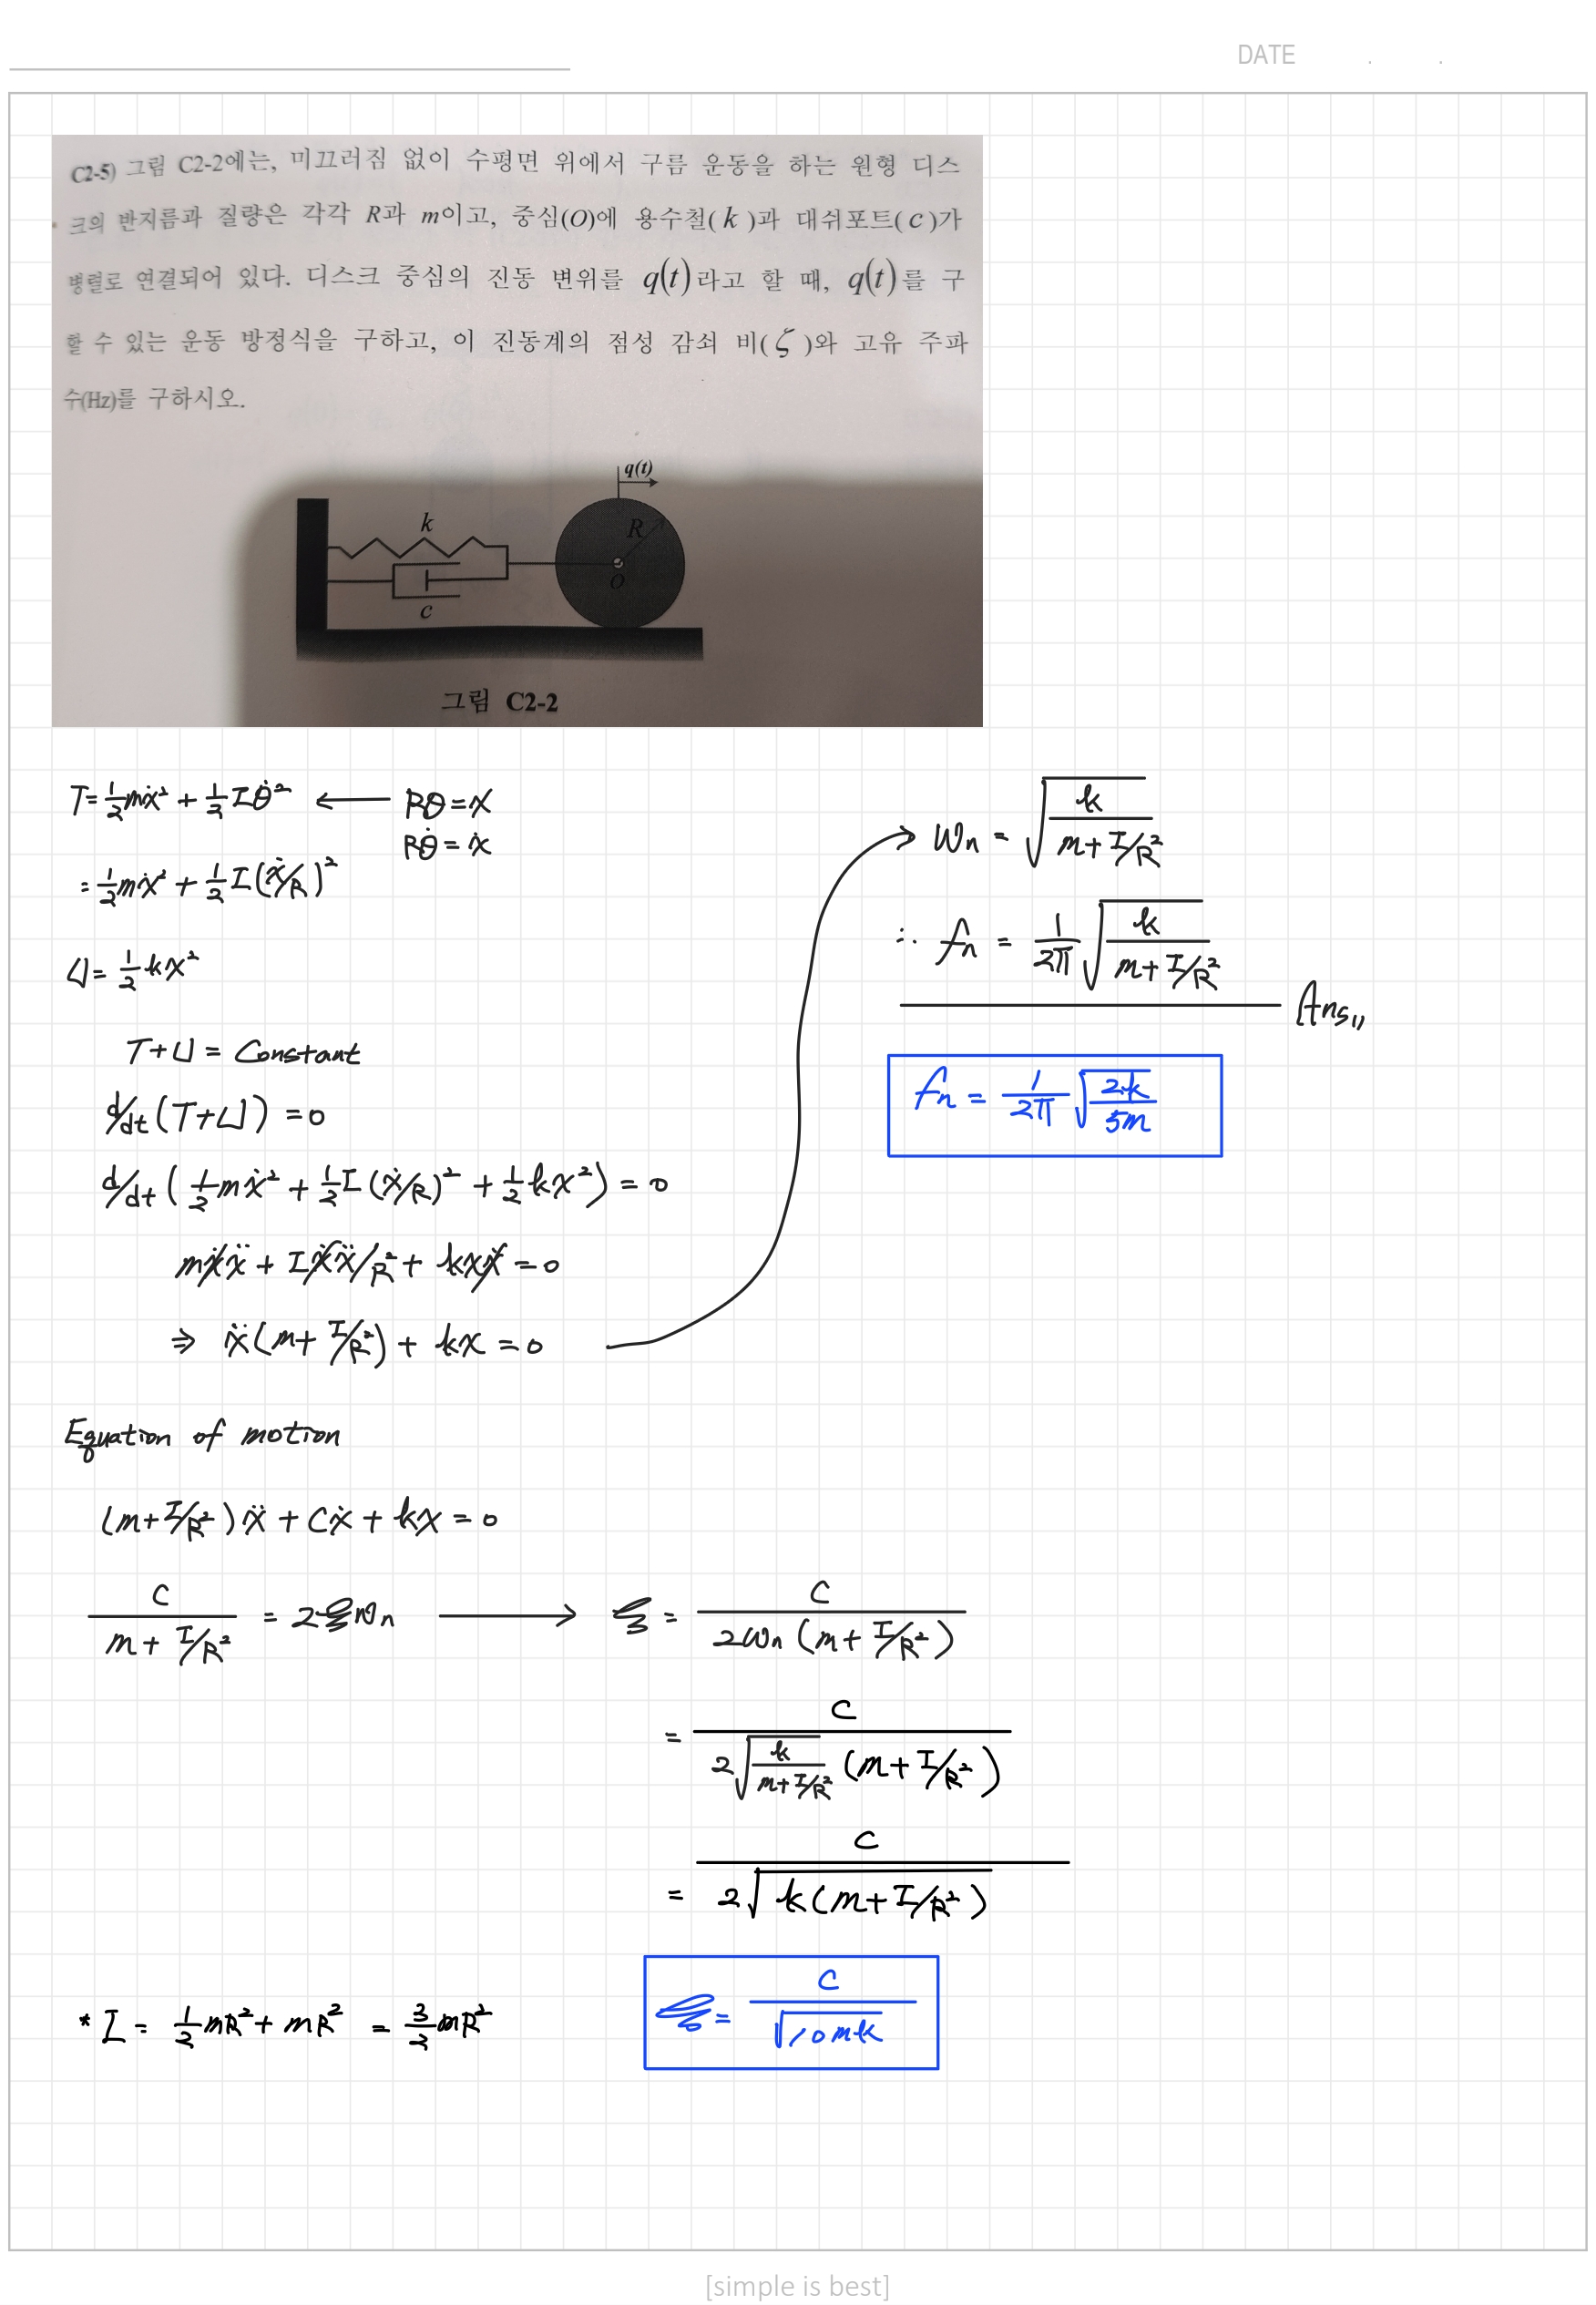 DATE . .
C2-5) 그림 C2-2에는, 미끄러짐 없이 수평면 위에서 구름 운동을 하는 원형 디스
크의 반지름과 질량은 각각 R과 m이고, 중심(O)에 용수철( k )과 대쉬포트( c )가
병렬로 연결되어 있다. 디스크 중심의 진동 변위를 q(t)라고 할 때, q(t)를 구
할 수 있는 운동 방정식을 구하고, 이 진동계의 점성 감쇠 비( ζ )와 고유 주파
수(Hz)를 구하시오.
q(t)
k
R
O
c
그림 C2-2
T = 1/2 mẋ² + 1/2 Iθ̇² ← Rθ = x
Rθ̇ = ẋ
= 1/2 mẋ² + 1/2 I(ẋ/R)²
U = 1/2 kx²
T+U = Constant
d/dt (T+U) = 0
d/dt ( 1/2 mẋ² + 1/2 I (ẋ/R)² + 1/2 kx² ) = 0
mẋẍ + Iẋẍ/R² + kxẋ = 0
⇒ ẍ(m + I/R²) + kx = 0
ωn = √(k/(m + I/R²))
∴ fn = 1/2π √(k/(m + I/R²))
Ans,,
fn = 1/2π √(2k/5m)
Equation of motion
(m + I/R²)ẍ + cẋ + kx = 0
c/(m + I/R²) = 2ξωn → ξ = c/(2ωn (m + I/R²))
= c/(2√(k/(m + I/R²)) (m + I/R²))
= c/(2√(k(m + I/R²)))
* I = 1/2 mR² + mR² = 3/2 mR²
ξ = c/√(10mk)
[simple is best]